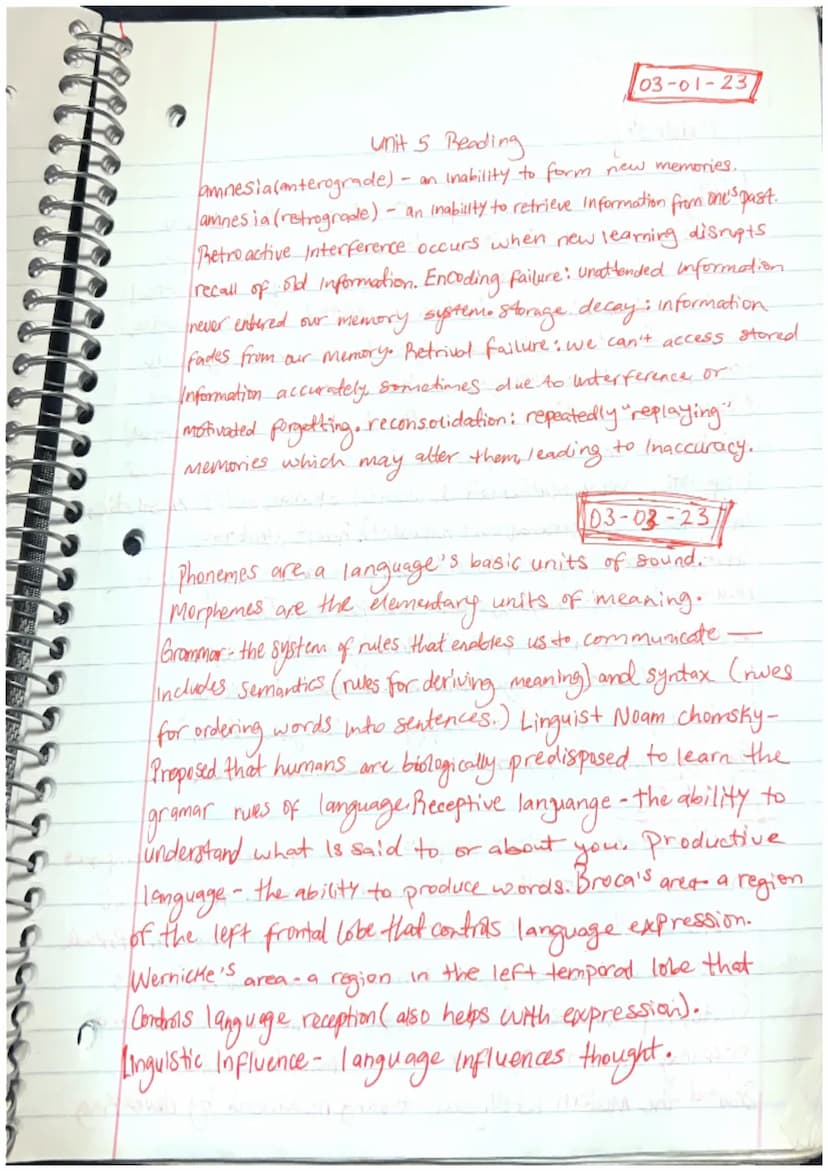 03-01-23
Unit 5 Reading
amnesia(anterograde) - an inability to form new memories.
amnesia(retrograde) - an inability to retrieve information from one's past.
Retroactive Interference occurs when new learning disrupts
recall of old information. Encoding failure: unattended information
never entered our memory system. Storage decay: information
fades from our memory. Retrival failure: we can't access stored
Information accurately, sometimes due to interference or
motivated forgetting. reconsolidation: repeatedly "replaying"
memories which may alter them, leading to Inaccuracy.
03-03-23
Phonemes are a language's basic units of sound.
Morphemes are the elementary units of meaning.
Grammar- the system of rules that enables us to communicate —
includes semantics (rules for deriving meaning) and syntax (rules
for ordering words into sentences.) Linguist Noam chomsky-
Proposed that humans are biologically predisposed to learn the
gramar rules of language. Receptive languange - the ability to
understand what is said to or about you. Productive
language - the ability to produce words. Broca's area - a region
of the left frontal lobe that controls language expression.
Wernicke's area - a region in the left temporal lobe that
Controls language reception (also helps with expression).
Linguistic Influence - language influences thought.